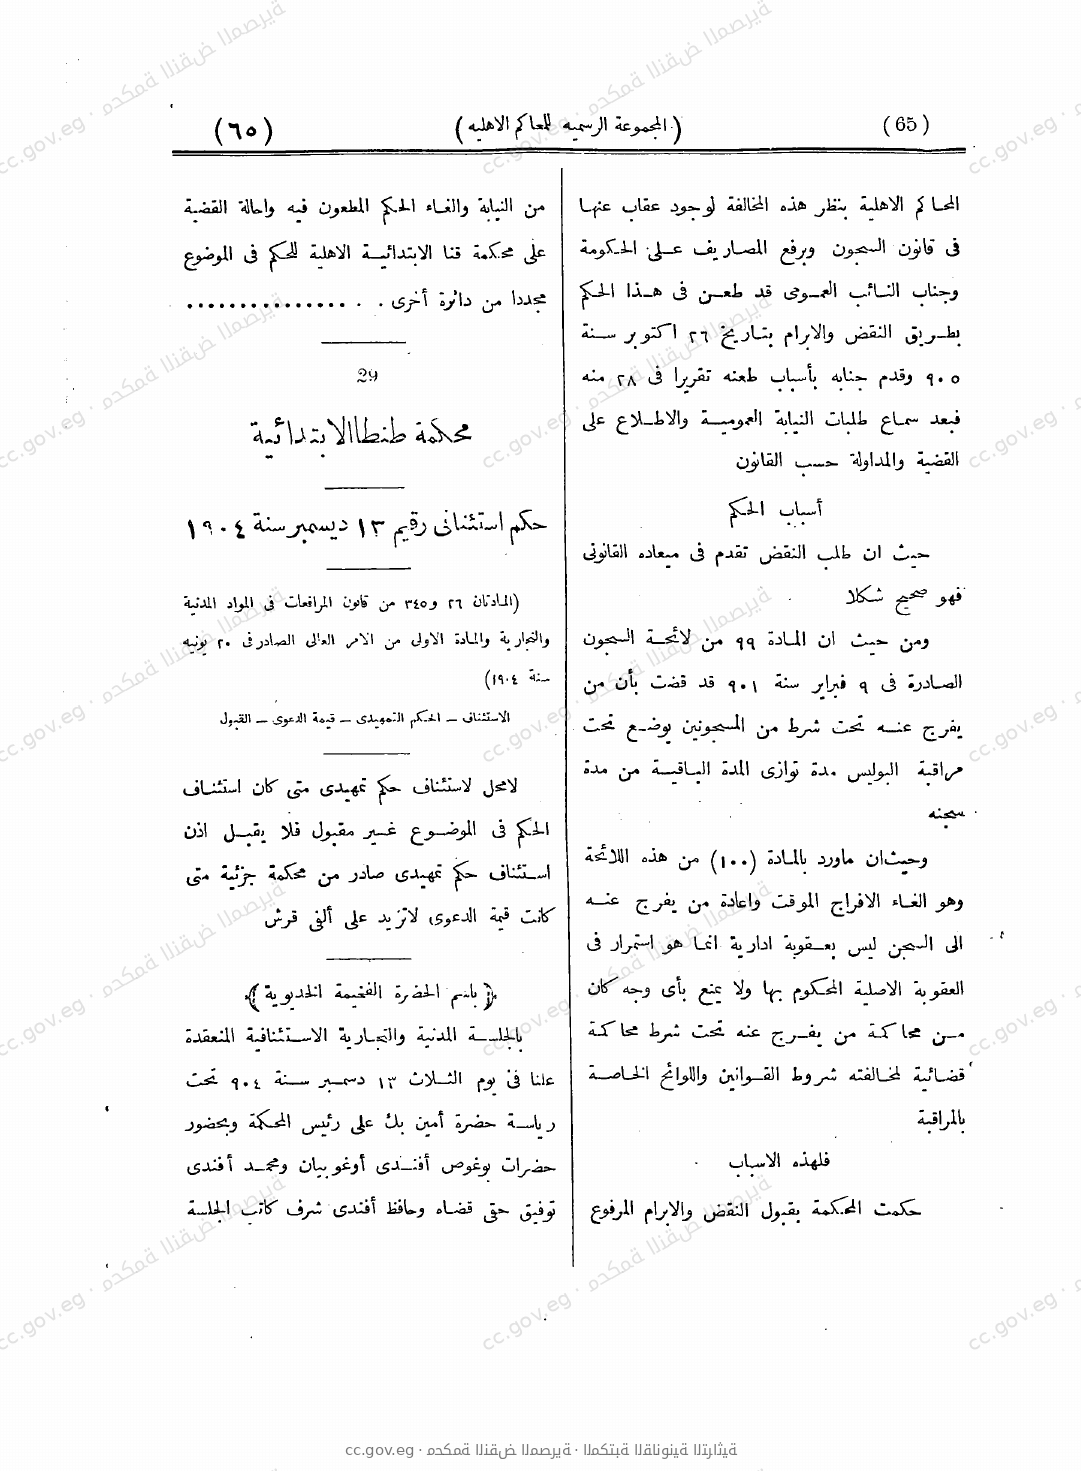 (65)
(المجموعة الرسميه للمحاكم الاهليه)
(٦٥)
المحاكم الاهلية بنظر هذه المخالفة لوجود عقاب عنها
فى قانون السجون ويرفع المصاريف على الحكومة
وجناب النائب العمومى قد طعن فى هذا الحكم
بطريق النقض والابرام بتاريخ ٢٦ اكتوبر سنة
٩٠٥ وقدم جنابه بأسباب طعنه تقريرا فى ٢٨ منه
فبعد سماع طلبات النيابة العمومية والاطلاع على
القضية والمداولة حسب القانون
أسباب الحكم
حيث ان طلب النقض تقدم فى ميعاده القانونى
فهو صحيح شكلا
ومن حيث ان المادة ٩٩ من لائحة السجون
الصادرة فى ٩ فبراير سنة ٩٠١ قد قضت بأن من
يفرج عنه تحت شرط من المسجونين يوضع تحت
مراقبة البوليس مدة توازى المدة الباقية من مدة
سجنه
وحيث ان ماورد بالمادة (١٠٠) من هذه اللائحة
وهو الغاء الافراج الموقت واعادة من يفرج عنه
الى السجن ليس بعقوبة ادارية انما هو استمرار فى
العقوبة الاصلية المحكوم بها ولا يمنع بأى وجه كان
من محاكمة من يفرج عنه تحت شرط محاكمة
قضائية لمخالفته شروط القوانين واللوائح الخاصة
بالمراقبة
فلهذه الاسباب
حكمت المحكمة بقبول النقض والابرام المرفوع
من النيابة والغاء الحكم المطعون فيه واحالة القضية
على محكمة قنا الابتدائية الاهلية للحكم فى الموضوع
مجددا من دائرة أخرى . . . . . . . . . . . . . . . . .
29
محكمة طنطا الابتدائية
حكم استئنافى رقيم ١٣ ديسمبر سنة ١٩٠٤
(المادتان ٢٦ و٣٤٥ من قانون المرافعات فى المواد المدنية
والتجارية والمادة الاولى من الامر العالى الصادر فى ٢٠ يونيه
سنة ١٩٠٤)
الاستئناف – الحكم التمهيدى – قيمة الدعوى – القبول
لا محل لاستئناف حكم تمهيدى متى كان استئناف
الحكم فى الموضوع غير مقبول فلا يقبل اذن
استئناف حكم تمهيدى صادر من محكمة جزئية متى
كانت قيمة الدعوى لاتزيد على ألفى قرش
﴿باسم الحضرة الفخيمة الخديوية﴾
بالجلسة المدنية والتجارية الاستئنافية المنعقدة
علنا فى يوم الثلاث ١٣ دسمبر سنة ٩٠٤ تحت
رياسة حضرة أمين بك على رئيس المحكمة وبحضور
حضرات بوغوص أفندى أوغوبيان ومحمد أفندى
توفيق حقى قضاه وحافظ أفندى شرف كاتب الجلسة
cc.gov.eg · محكمة النقض المصرية · المكتبة القانونية التراثية